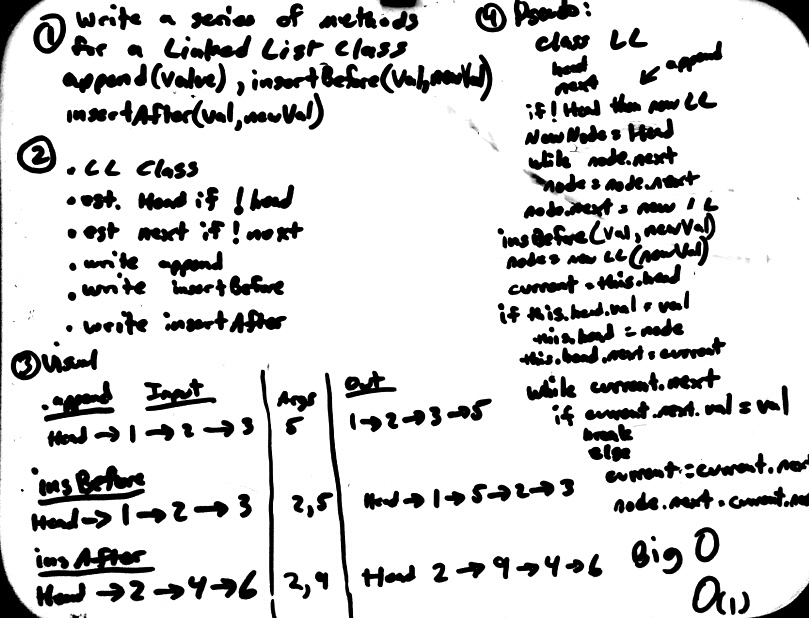 ① Write a series of methods
for a Linked List Class
append(value), insertBefore(val,newVal)
insertAfter(val,newVal)
②
• LL Class
• est. Head if !head
• est next if !next
• write append
• write insertBefore
• write insertAfter
③ Visual
.append Input Args Out
Head → 1 → 2 → 3 5 1 → 2 → 3 → 5
insBefore
Head → 1 → 2 → 3 2,5 Head → 1 → 5 → 2 → 3
insAfter
Head → 2 → 4 → 6 2,9 Head 2 → 9 → 4 → 6
④ Pseudo:
class LL
head
next
append
if !Head then new LL
NewNode = Head
while node.next
node = node.next
node.next = new LL
insBefore(val, newVal)
node = new LL(newVal)
current = this.head
if this.head.val = val
this.head = node
this.head.next = current
while current.next
if current.next.val = val
break
else
current = current.nex
node.next = current.ne
Big O
O(1)